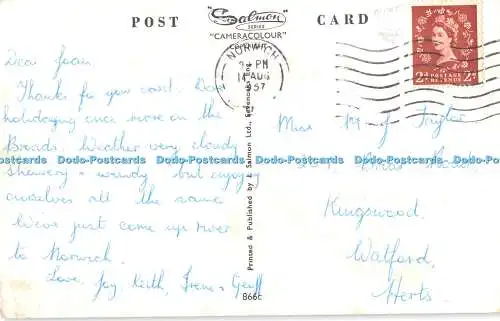 POST CARD
"Salmon"
SERIES
"CAMERACOLOUR"
NORWICH
PM
14 AUG
1957
2D POSTAGE REVENUE 2D
Dear Joan,
Thanks for your card. Dear
holidaying once more on the
Broads. Weather very cloudy
showery + windy but enjoying
ourselves all the same
We've just come up river
to Norwich.
Love, Joy, Keith, Irene + Geoff
Printed & Published by J. Salmon Ltd., Sevenoaks, Eng.
866c
Miss M J Taylor
Kingswood,
Watford,
Herts.
Dodo-Postcards Dodo-Postcards Dodo-Postcards Dodo-Postcards Dodo-Postcards